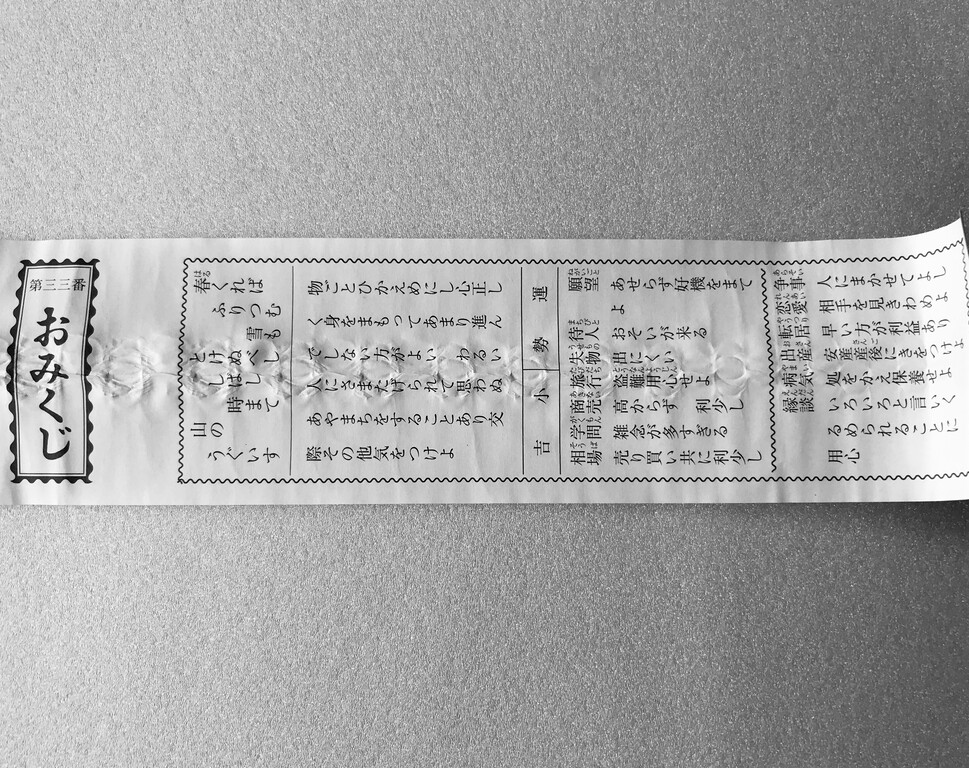 第三三番
おみくじ
春くれば
ふりつむ
雪も
とけぬべし
しばし
時まて
山の
うぐいす
物ごとひかえめにし心正し
く身をまもってあまり進ん
でしない方がよい わるい
人にさまたげられて思わぬ
あやまちをすることあり交
際その他気をつけよ
運勢
小吉
願望 あせらず好機をまて
よ
待人 おそいが来る
失物 出にくい
旅行 盗難用心せよ
商売 高からず 利少し
学問 雑念が多すぎる
相場 売り買い共に利少し
争事 人にまかせてよし
恋愛 相手を見きわめよ
転居 早い方が利益あり
出産 安産産後にきをつけよ
病気 処をかえ保養せよ
縁談 いろいろと言いく
るめられることに
用心